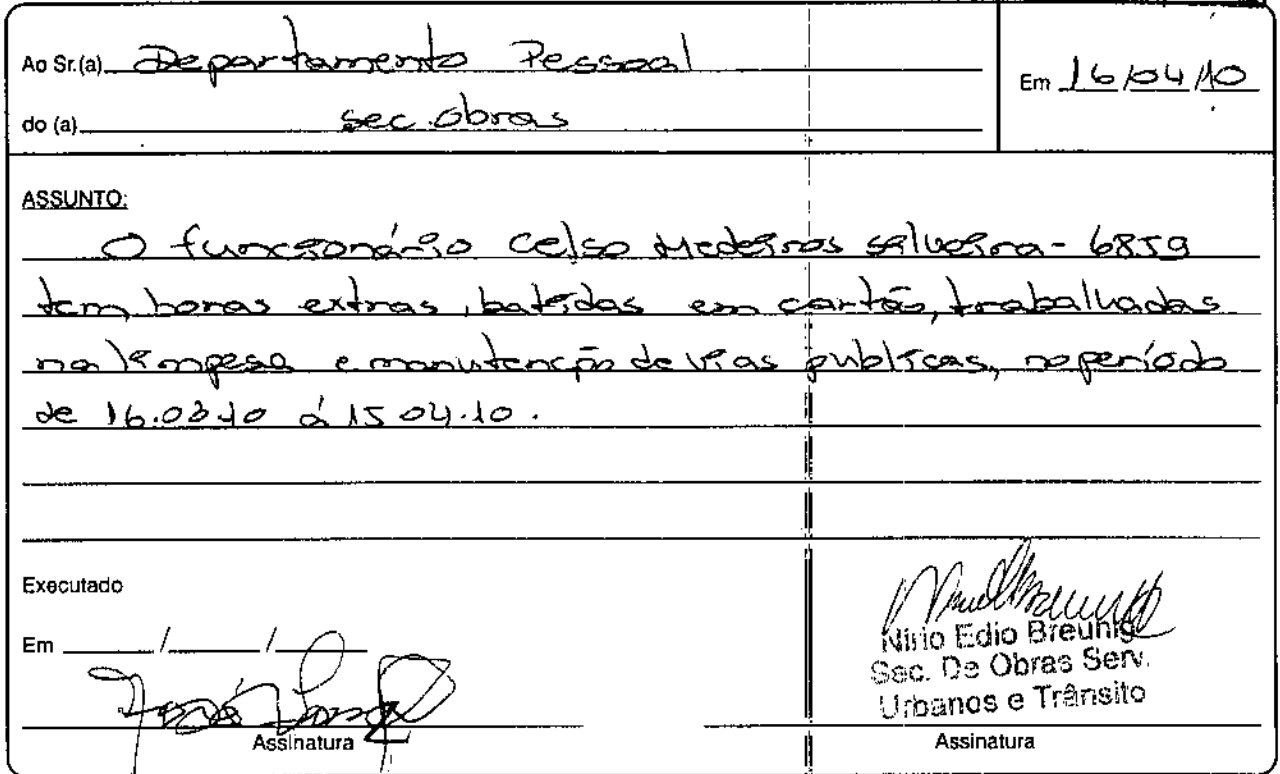 Ao Sr.(a) Departamento Pessoal
Em 16/04/10
do (a) sec. obras
ASSUNTO:
O funcionário Celso Medeiros Silveira - 6859
tem horas extras, batidas em cartão, trabalhadas
na limpesa e manutenção de vias publicas, no período
de 16.03.10 á 15.04.10.
Executado
Em / /
Nirio Edio Breunig
Sec. De Obras Serv.
Urbanos e Trânsito
Assinatura
Assinatura